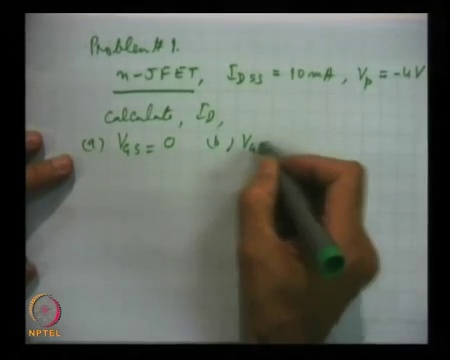 Problem # 1.
n-JFET, IDSS = 10mA, Vp = -4V
Calculate, ID,
(a) VGS = 0 (b) VGS
NPTEL